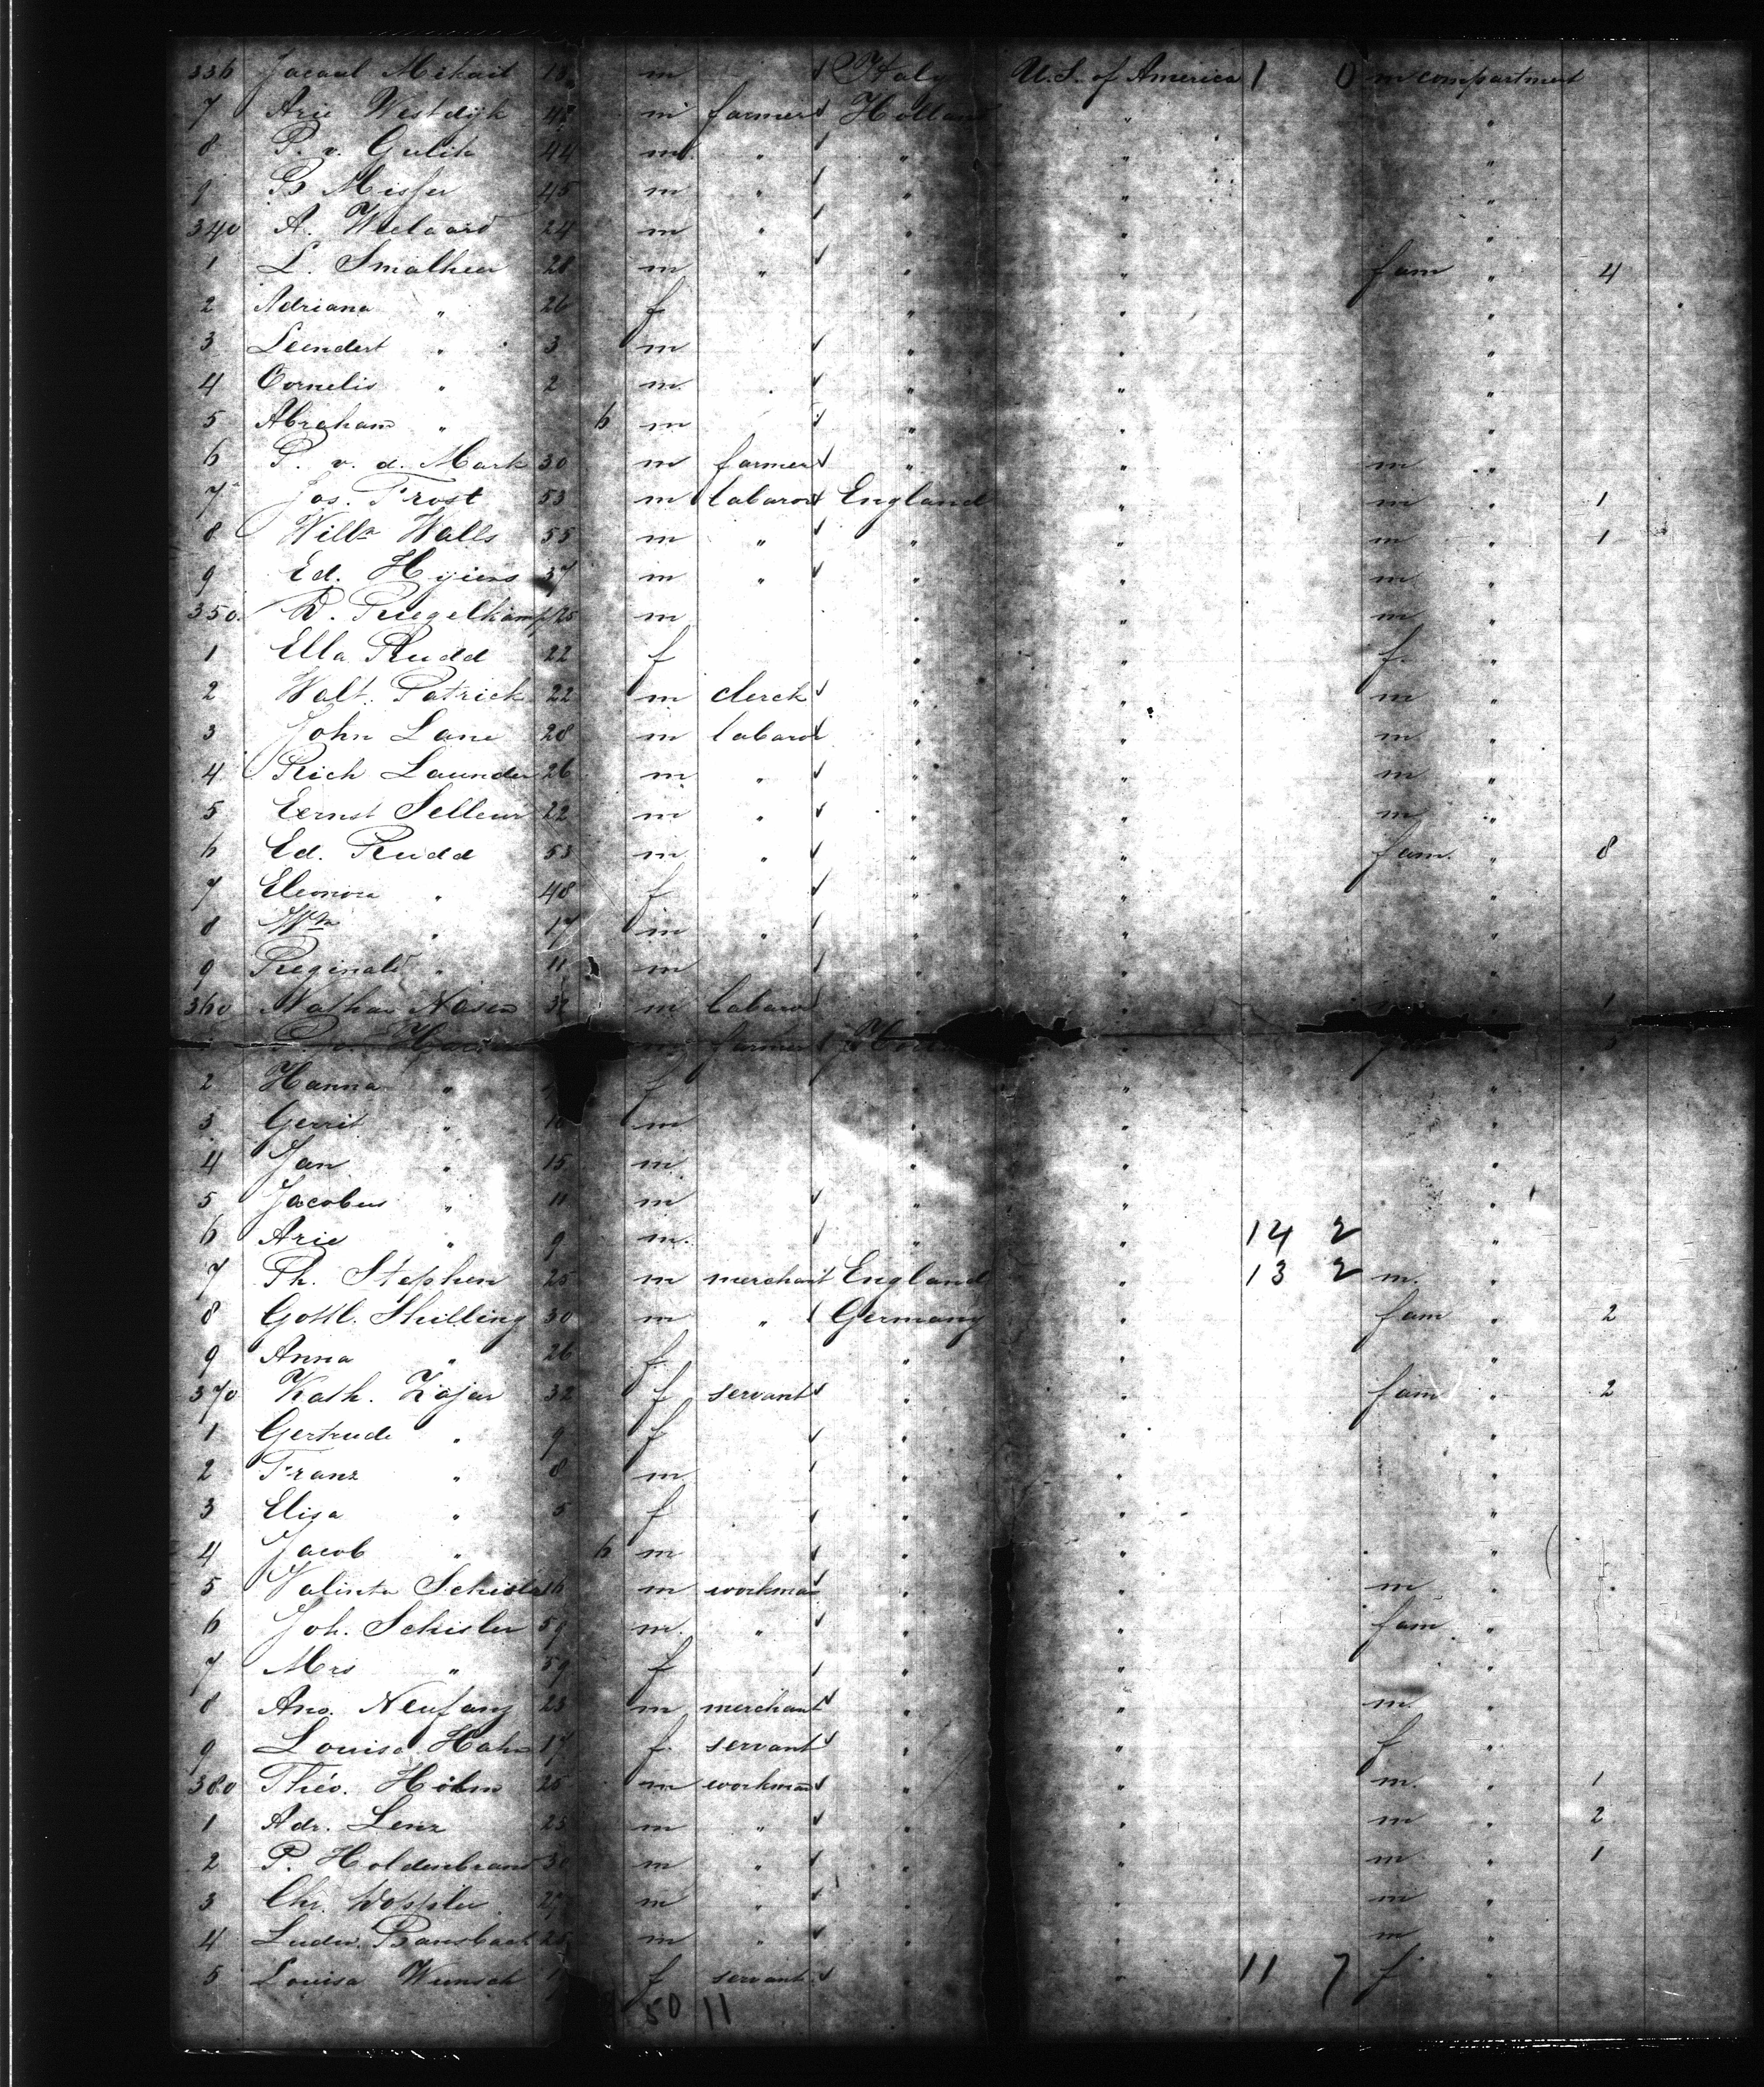 336 Mikail 18 m Italy U.S. of America 1 0 m compartment
7 Arie Westdijk 48 m farmer Holland " "
8 P. v. Gulik 44 m " " " "
9 B. Misser 45 m " " " "
340 A. Wielaard 24 m " " " "
1 L. 28 m " " " fam " 4
2 Adriana " 26 f " " "
3 Leendert " 3 m " " "
4 Cornelis " 2 m " " "
5 Abraham " 6 m " " "
6 P. v. d. Mark 30 m farmer " " m "
7 Jos. Frost 53 m labaror England " m " 1
8 Willm Walls 55 m " " " m " 1
9 Ed. 37 m " " " m "
350. R. Riegelkamp 25 m " " m "
1 Ella Rudd 22 f " " f "
2 Walt. Patrick 22 m clerck " " m "
3 John Lane 28 m labaror " " m "
4 Rich Launder 26 m " " " m "
5 Eernst 22 m " " " m "
6 Ed. Rudd 53 m " " " fam. " 8
7 Eleonora " 48 f " " "
8 Wm " 17 m " " " "
9 Reginald " 11 m " " "
360 Nathan 32 m labaror " " m 1
m farmer
2 Hanna " f " "
3 Gerrit " 16 m " " "
4 Jan " 15 m " " "
5 Jacobus " 11 m " " "
6 Arie " 9 m. " " 14 2 "
7 Th. Stephen 25 m merchant England " 13 2 m. "
8 Gottl. Shilling 30 m " Germany " fam " 2
9 Anna " 26 f " " "
370 Kath. Zajar 32 f servant " " fam " 2
1 Gertrude " 9 f " " "
2 Franz " 8 m " " "
3 Elisa " 5 f " " "
4 Jacob " 6 m " " "
5 Valintn Schisler 16 m workman " " m "
6 Joh. Schisler 59 m. " " " fam "
7 Mrs " 59 f " " "
8 Ano. Neufang 23 m merchant " " m. "
9 Louisa Hahn 17 f. servant " " f "
380 Théo. Höhn 25 m workman " " m. " 1
1 Adr. Lenz 25 m " " " m " 2
2 P. Holdenbrand 30 m " " " m " 1
3 Chr. Doppler 27 m " " " m "
4 Ludw. Bansbach 25 m " " " m "
5 Louisa Wunsch f servant " " 11 7 f "
50 11